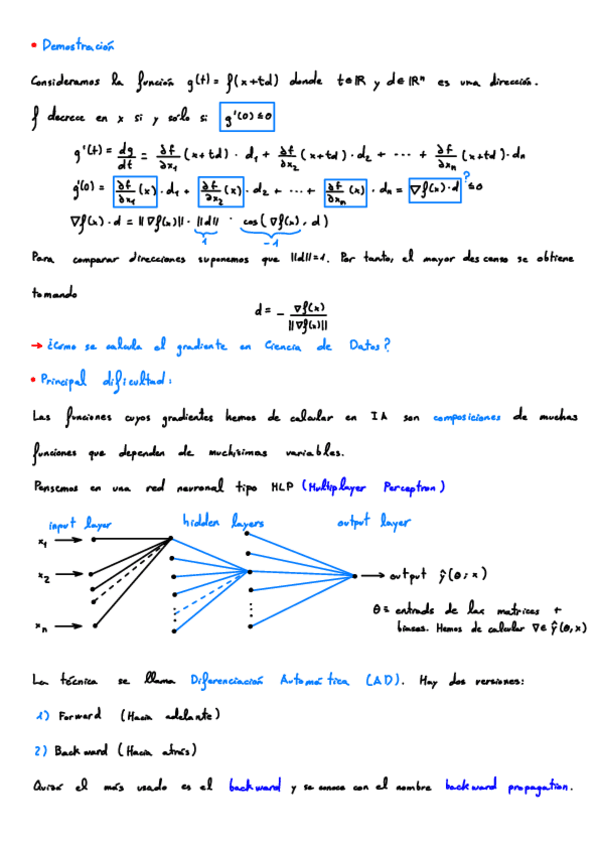 • Demostración
Consideramos la función g(t) = f(x+td) donde t∈ℝ y d∈ℝⁿ es una dirección.
f decrece en x si y sólo si g'(0) ≤ 0
g'(t) = dg/dt = ∂f/∂x₁ (x+td) · d₁ + ∂f/∂x₂ (x+td) · d₂ + ··· + ∂f/∂xₙ (x+td) · dₙ
g'(0) = ∂f/∂x₁ (x) · d₁ + ∂f/∂x₂ (x) · d₂ + ··· + ∂f/∂xₙ (x) · dₙ = ∇f(x) · d ≤ 0 ?
∇f(x) · d = ||∇f(x)|| · ||d|| · cos(∇f(x), d)
1 -1
Para comparar direcciones suponemos que ||d||=1. Por tanto, el mayor descenso se obtiene
tomando
d = - ∇f(x) / ||∇f(x)||
→ ¿Cómo se calcula el gradiente en Ciencia de Datos?
• Principal dificultad:
Las funciones cuyos gradientes hemos de calcular en IA son composiciones de muchas
funciones que dependen de muchísimas variables.
Pensemos en una red neuronal tipo MLP (Multiplayer Perceptron)
input layer hidden layers output layer
x₁
x₂
xₙ
→ output ŷ(θ; x)
θ ≡ entrada de las matrices +
biases. Hemos de calcular ∇θ ŷ(θ,x)
La técnica se llama Diferenciación Automática (AD). Hay dos versiones:
1) Forward (Hacia adelante)
2) Backward (Hacia atrás)
Quizá el más usado es el backward y se conoce con el nombre backward propagation.